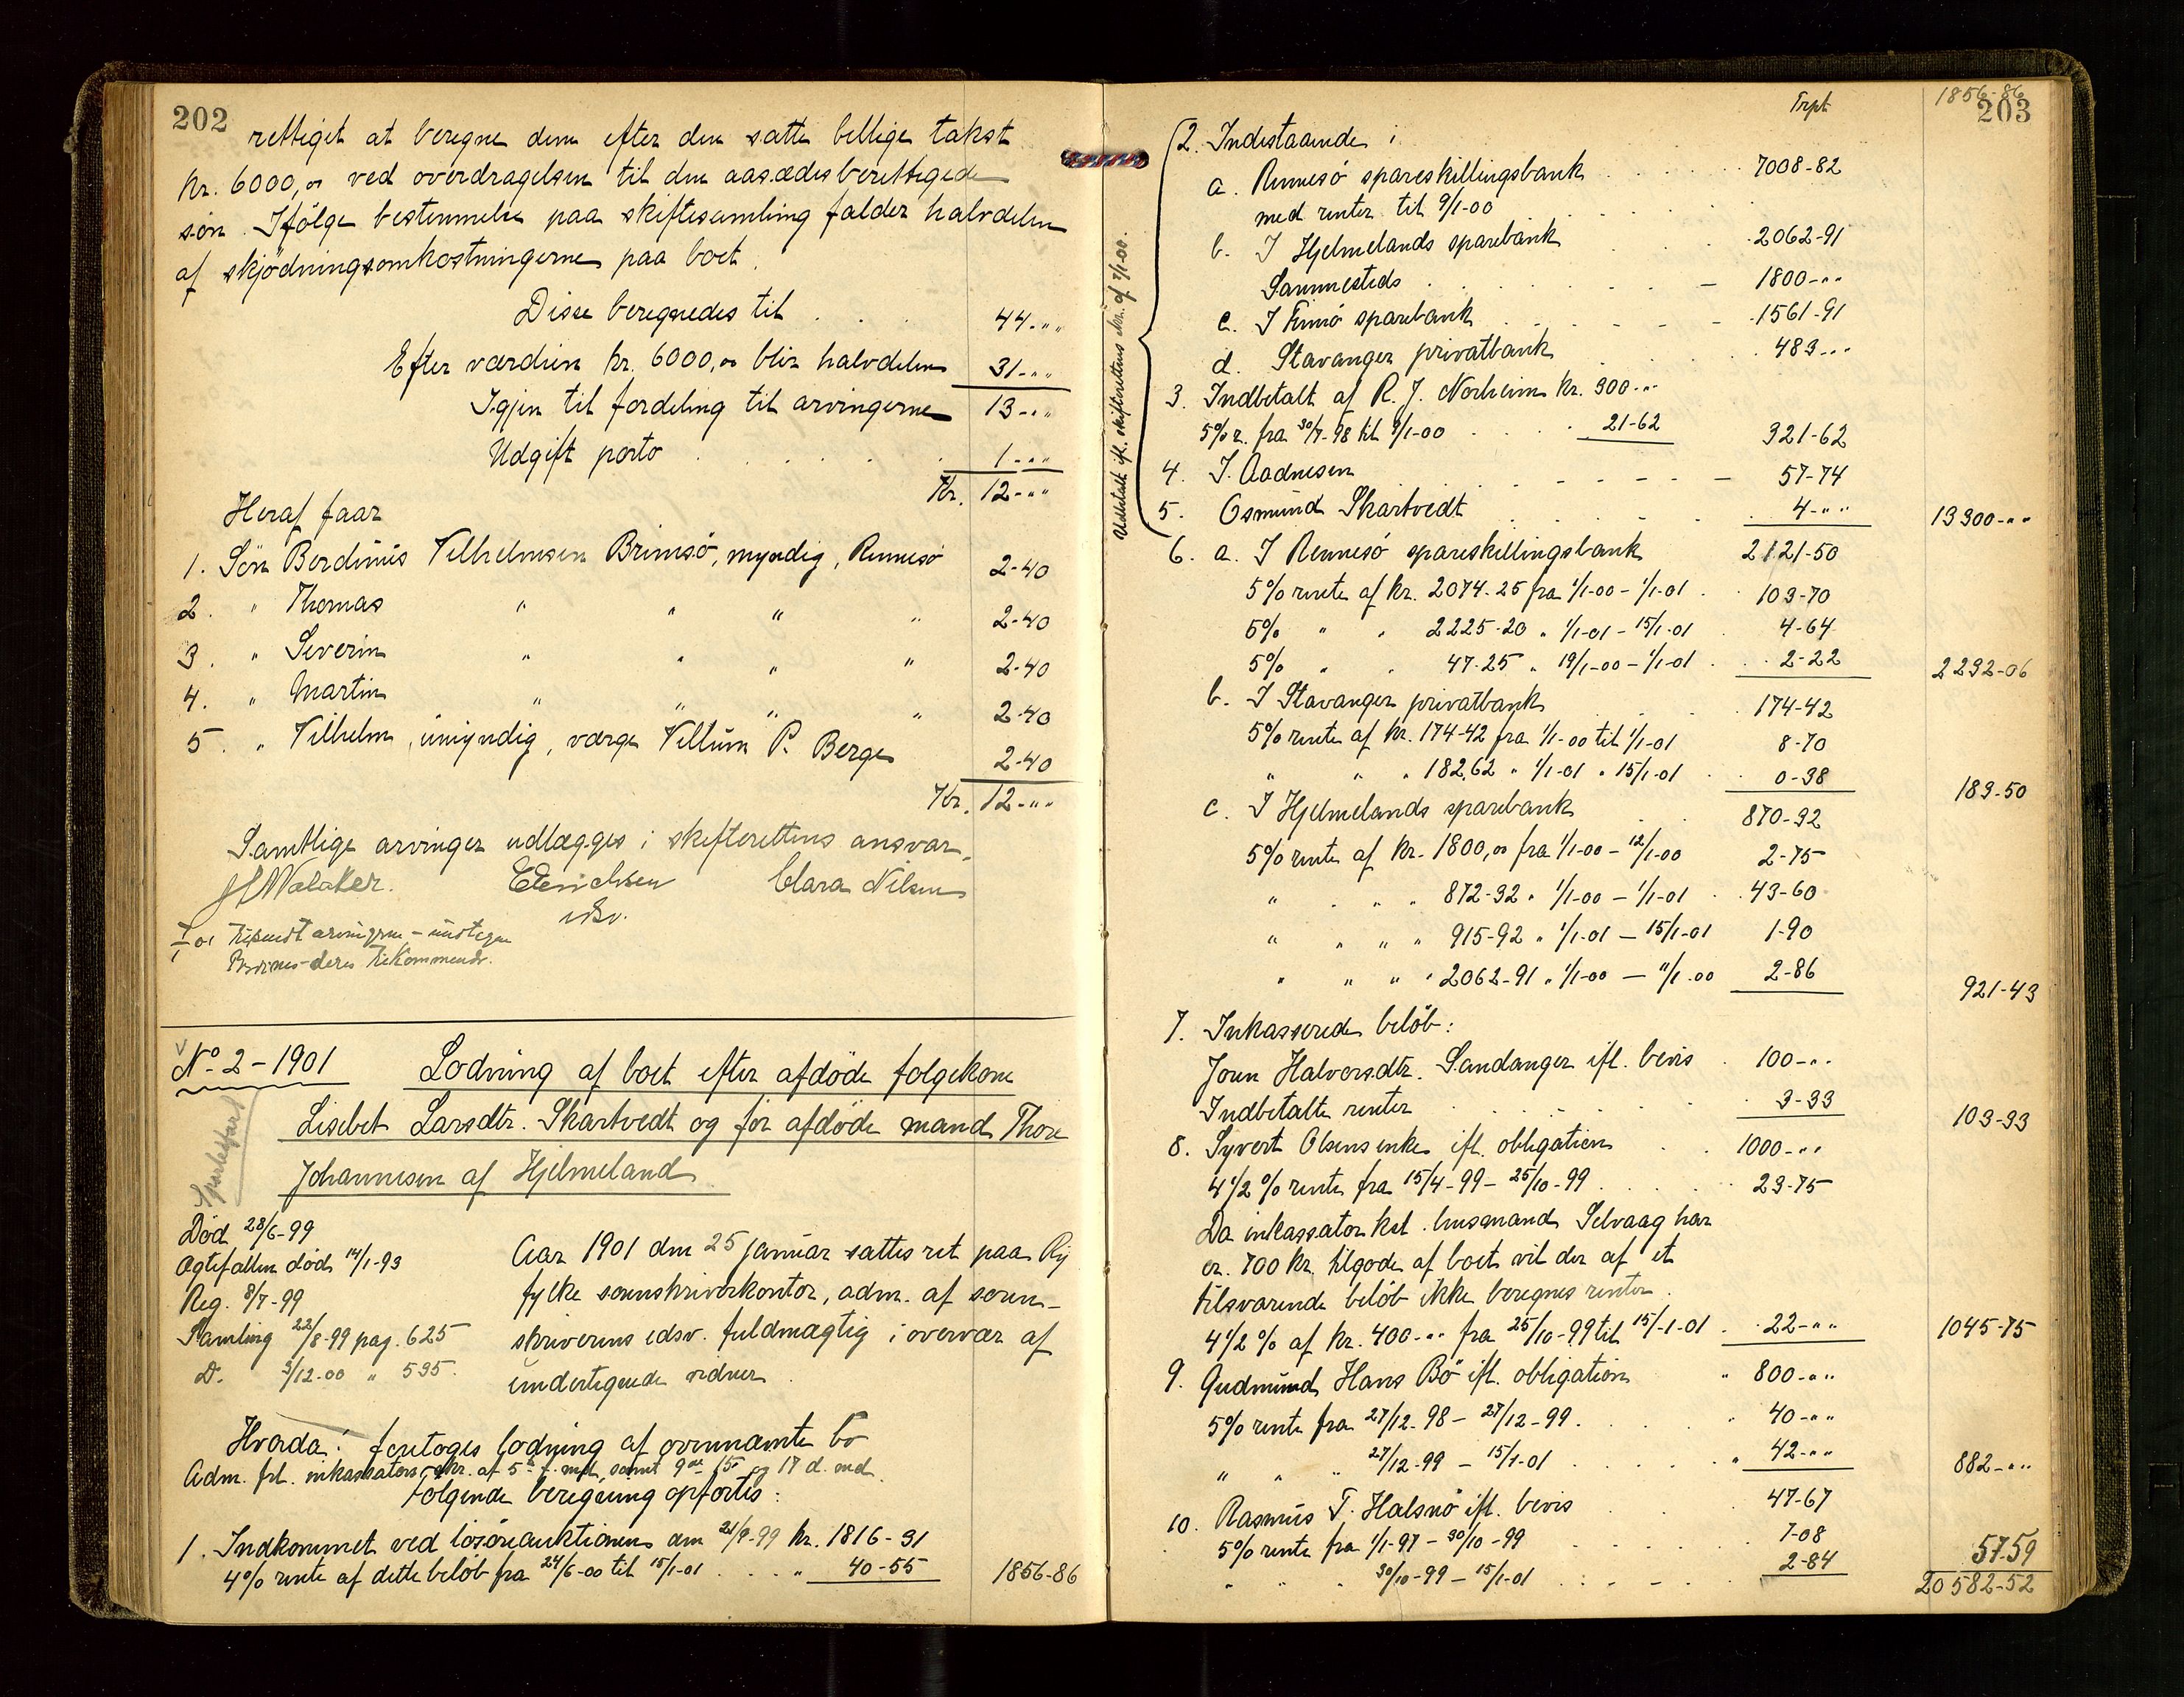 202
rettiget at beregne dem efter den satte billige takst
kr. 6000,00 ved overdragelsen til den aasædesberettigede
søn. Ifølge bestemmelse paa skiftesamling falder halvdelen
af skjødningsomkostningerne paa boet.
Disse beregnedes til . . . 44-""
Efter værdien kr. 6000,00 blir halvdelen 31-""
Igjen til fordeling til arvingerne 13-""
Udgift porto . . . . . 1-""
Kr. 12-""
Heraf faar
1. Søn Berdinus Vilhelmsen Brimsø, myndig, Rennesø 2-40
2. " Thomas " " " " 2-40
3. " Severin " " " " 2-40
4. " Martin " " " " 2-40
5. " Vilhelm, umyndig, værge Villum P. Berge 2-40
Kr. 12-""
Samtlige arvinger udlægges i skifterettens ansvar.
Erichsen Clara Nilsen
edsv.
No 2-1901 Lodning af boet efter afdöde folgekone
Lisebet Larsdtr. Skartvedt og för afdöde mand Thore
Johannesen af Hjelmeland
Död 28/6-99
Ægtefællen död 14/1-93
Reg. 8/7-99
Samling 22/8-99 pag. 625
D. 3/12-00 " 535.
Aar 1901 den 25 januar sattes ret paa Ry
fylke sorenskriverkontor, adm. af soren-
skriverens edsv. fuldmægtig i overvær af
undertegnede vidner.
Hvorda: foretoges lodning af ovennævnte bo
Adm. frl. inkassators skr. af 5te f. md, samt 9de 15 og 17 d. md.
Følgende beregning opførtes:
1. Indkommet ved lösöreauktionen den 21/9-99 kr. 1816-31
4% rente af dette beløb fra 24/6-00 til 15/1-01 . . . " 40-55 1856-86
203
Trpt 1856-86
Udbetalt ifl. skifterettens skr. af 9/1-00.
2. Indestaaende i
a. Rennesö spareskillingsbank . . . . 7008-82
med renter til 9/1-00
b. I Hjelmelands sparebank . . 2062-91
Sammesteds . . . . . 1800-""
c. I Finnö sparebank . . . . 1561-91
d. Stavanger privatbank . . . 483-""
3. Indbetalt af R. J. Norheim kr. 300-""
5% r. fra 30/7-98 til 9/1-00 . . . 21-62 321-62
4. J. Aadnesen . . . . . 57-74
5. Osmund Skartvedt . . . . . 4-"" 13300-""
6. a. I Rennesö spareskillingsbank 2121-50
5% rente af kr. 2074-25 fra 1/1-00 - 1/1-01 . 103-70
5% " " 2225-20 " 1/1-01 - 15/1-01 4-64
5% " " 47-25 " 19/1-00 - 1/1-01 . . 2-22 2232-06
b. I Stavanger privatbank . . 174-42
5% rente af kr. 174-42 fra 1/1-00 til 1/1-01 8-70
" " " 182,62 " 1/1-01 " 15/1-01 . 0-38 183-50
c. I Hjelmelands sparebank . . 870-32
5% rente af kr. 1800,00 fra 1/1-00 - 12/1-00 2-75
" " " " 872-32 " 1/1-00 - 1/1-01 . 43-60
" " " " 915-92 " 1/1-01 - 15/1-01 1-90
" " " " 2062-91 " 1/1-00 - 11/1-00 2-86 921-43
7. Inkasserede belöb:
Joren Halvorsdtr. Sandanger ifl. bevis . 100-""
Indbetalte renter . . . . . 3-33 103-33
8. Syvert Olsens enke ifl. obligation . . 1000-""
4 1/2 % rente fra 15/4-99 - 25/10-99 . . . 23-75
Da inkassator kst. lensmand Selvaag har
ca. 700 kr. tilgode af boet vil der af et
tilsvarende belöb ikke beregnes renter.
4 1/2 % af kr. 400-"" fra 25/10-99 til 15/1-01 . 22-"" 1045-75
9. Gudmund Hans Bö ifl. obligation " 800-""
5% rente fra 27/12-98 - 27/12-99 . . " 40-""
" " " 27/12-99 - 15/1-01 . . . " 42-"" 882-""
10. Rasmus T. Halsnö ifl. bevis . 47-67
5% rente fra 1/1-97 - 30/10-99 . . . . 7-08
" " " 30/10-99 - 15/1-01 . . . . 2-84 57-59
20582-52